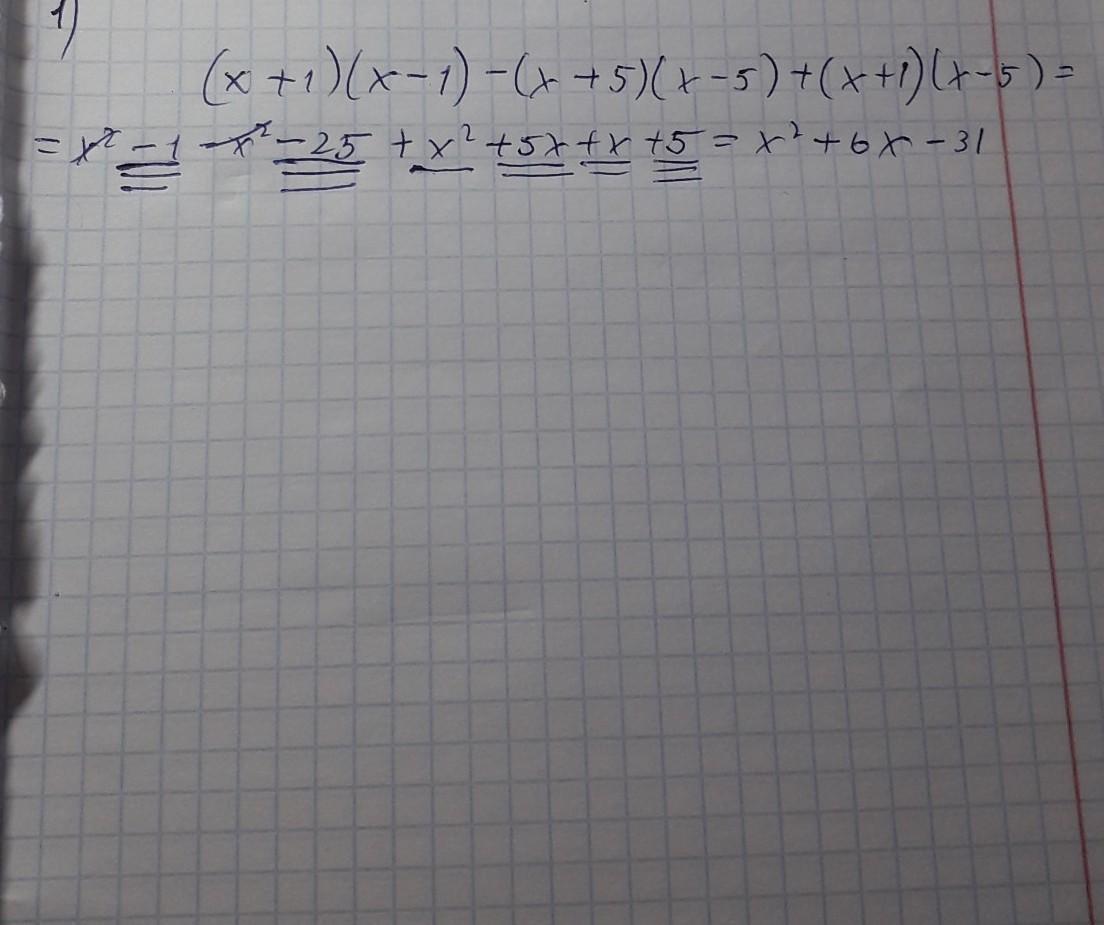 1)
(x+1)(x-1)-(x+5)(x-5)+(x+1)(x-5)=
=x²-1-x²-25+x²+5x+x+5=x²+6x-31